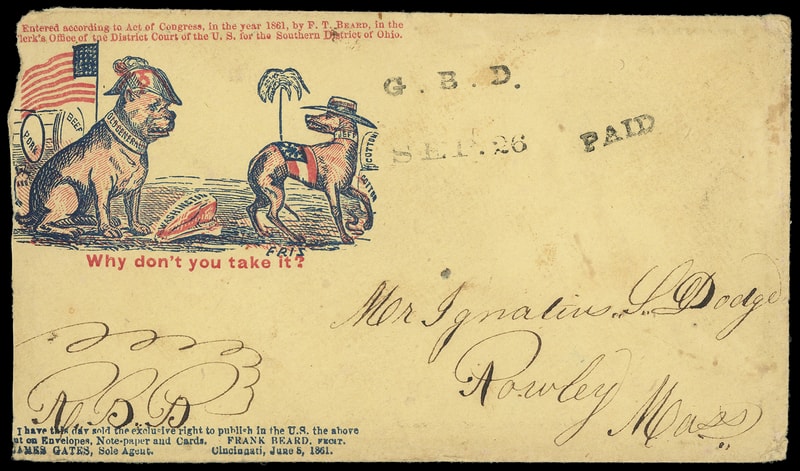 Entered according to Act of Congress, in the year 1861, by F. T. BEARD, in the
Clerk's Office of the District Court of the U. S. for the Southern District of Ohio.
G. B. D.
SEP. 26
PAID
BEEF
PORK
OLD GENERAL
JEFF
COTTON
COTTON
WASHINGTON
Why don't you take it?
Mr Ignatius. S. Dodge
Rowley
Mass
I have this day sold the exclusive right to publish in the U.S. the above
cut on Envelopes, Note-paper and Cards. FRANK BEARD, FECIT.
JAMES GATES, Sole Agent. Cincinnati, June 8, 1861.